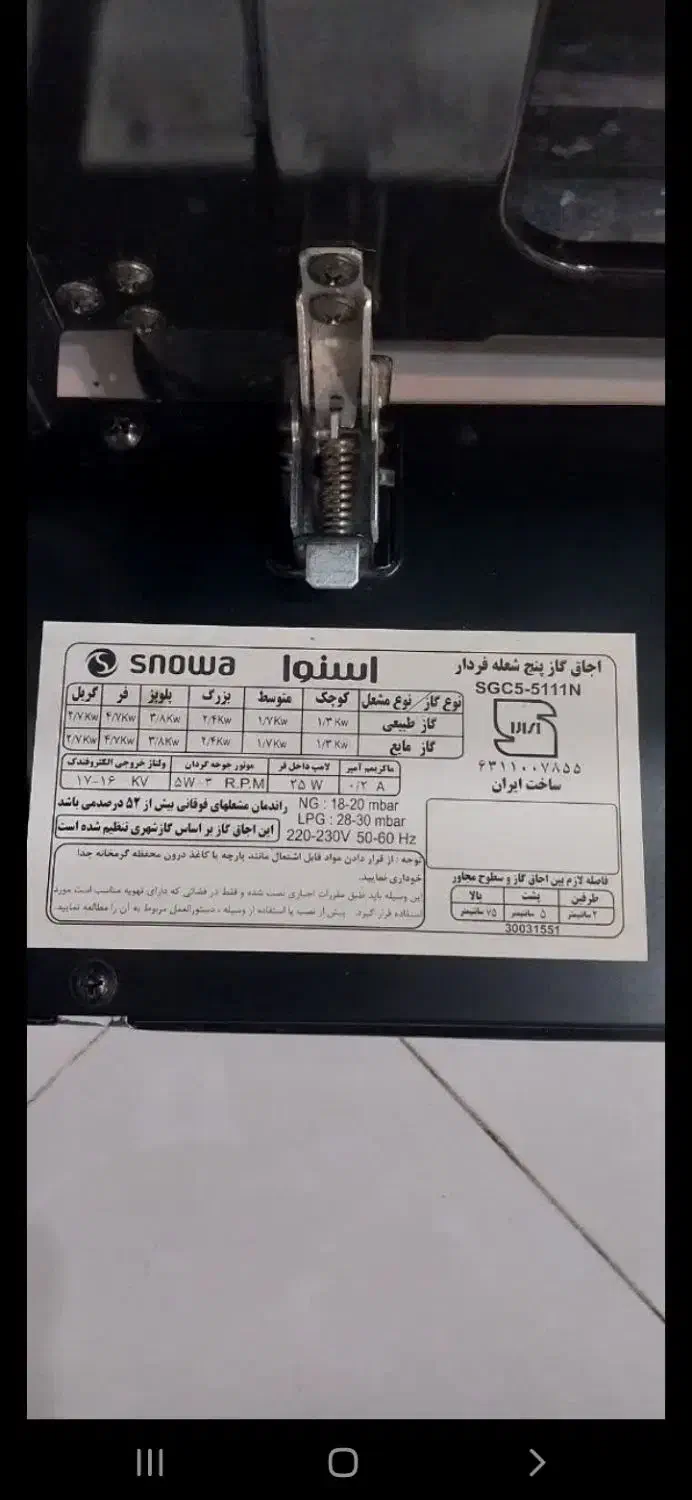 snowa اسنوا
اجاق گاز پنج شعله فردار
SGC5-5111N
ISIRI
۶۳۱۱۰۰۷۸۵۵
ساخت ایران
نوع گاز/ نوع مشعل کوچک متوسط بزرگ پلوپز فر گریل
گاز طبیعی ۱/۳ Kw ۱/۷Kw ۲/۴Kw ۳/۸Kw ۴/۷Kw ۲/۷Kw
گاز مایع ۱/۳ Kw ۱/۷Kw ۲/۴Kw ۳/۸Kw ۴/۷Kw ۲/۷Kw
ماکزیمم آمپر لامپ داخل فر موتور جوجه گردان ولتاژ خروجی الکتروفندک
۰/۲ A ۲۵ W ۵W-۳ R.P.M ۱۷-۱۶ KV
NG : 18-20 mbar
راندمان مشعلهای فوقانی بیش از ۵۲ درصدمی باشد
LPG : 28-30 mbar
این اجاق گاز بر اساس گازشهری تنظیم شده است
220-230V 50-60 Hz
توجه : از قرار دادن مواد قابل اشتعال مانند پارچه یا کاغذ درون محفظه گرمخانه جدا
خودداری نمایید.
این وسیله باید طبق مقررات اجباری نصب شده و فقط در فضائی که دارای تهویه مناسب است مورد
استفاده قرار گیرد. پیش از نصب یا استفاده از وسیله ، دستورالعمل مربوط به آن را مطالعه نمایید.
فاصله لازم بین اجاق گاز و سطوح مجاور
طرفین پشت بالا
۲ سانتیمتر ۵ سانتیمتر ۷۵ سانتیمتر
30031551